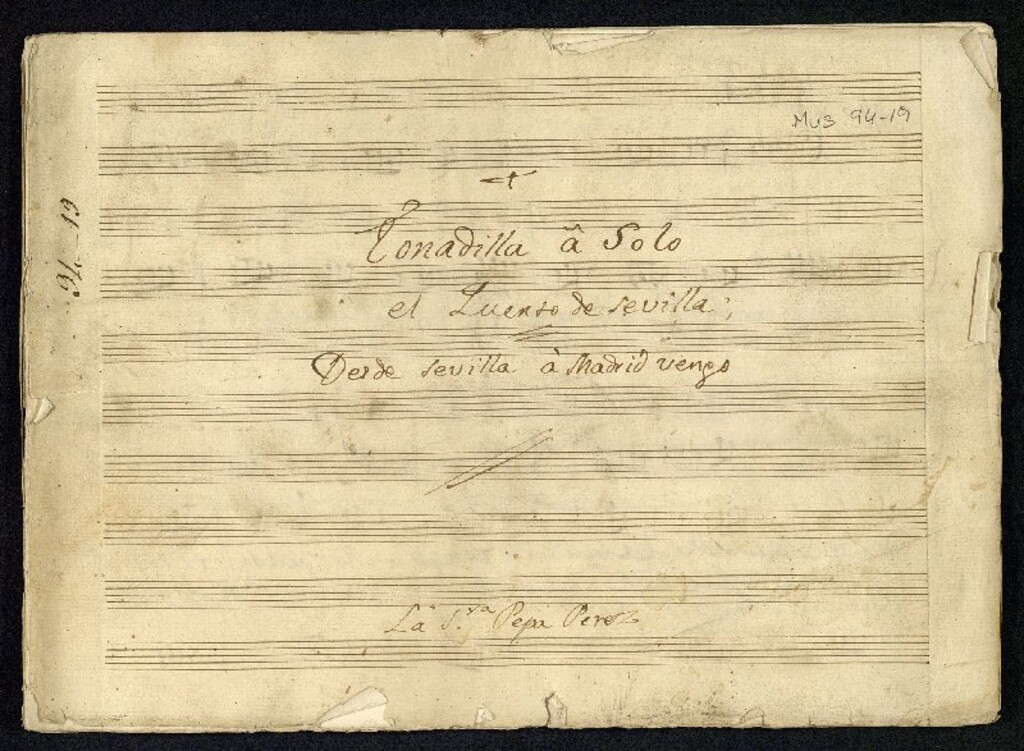 Mus 94-19
94-19
Tonadilla â Solo
el Luenso de sevilla;
Desde sevilla à Madrid vengo
La S.ra Pepa Perez